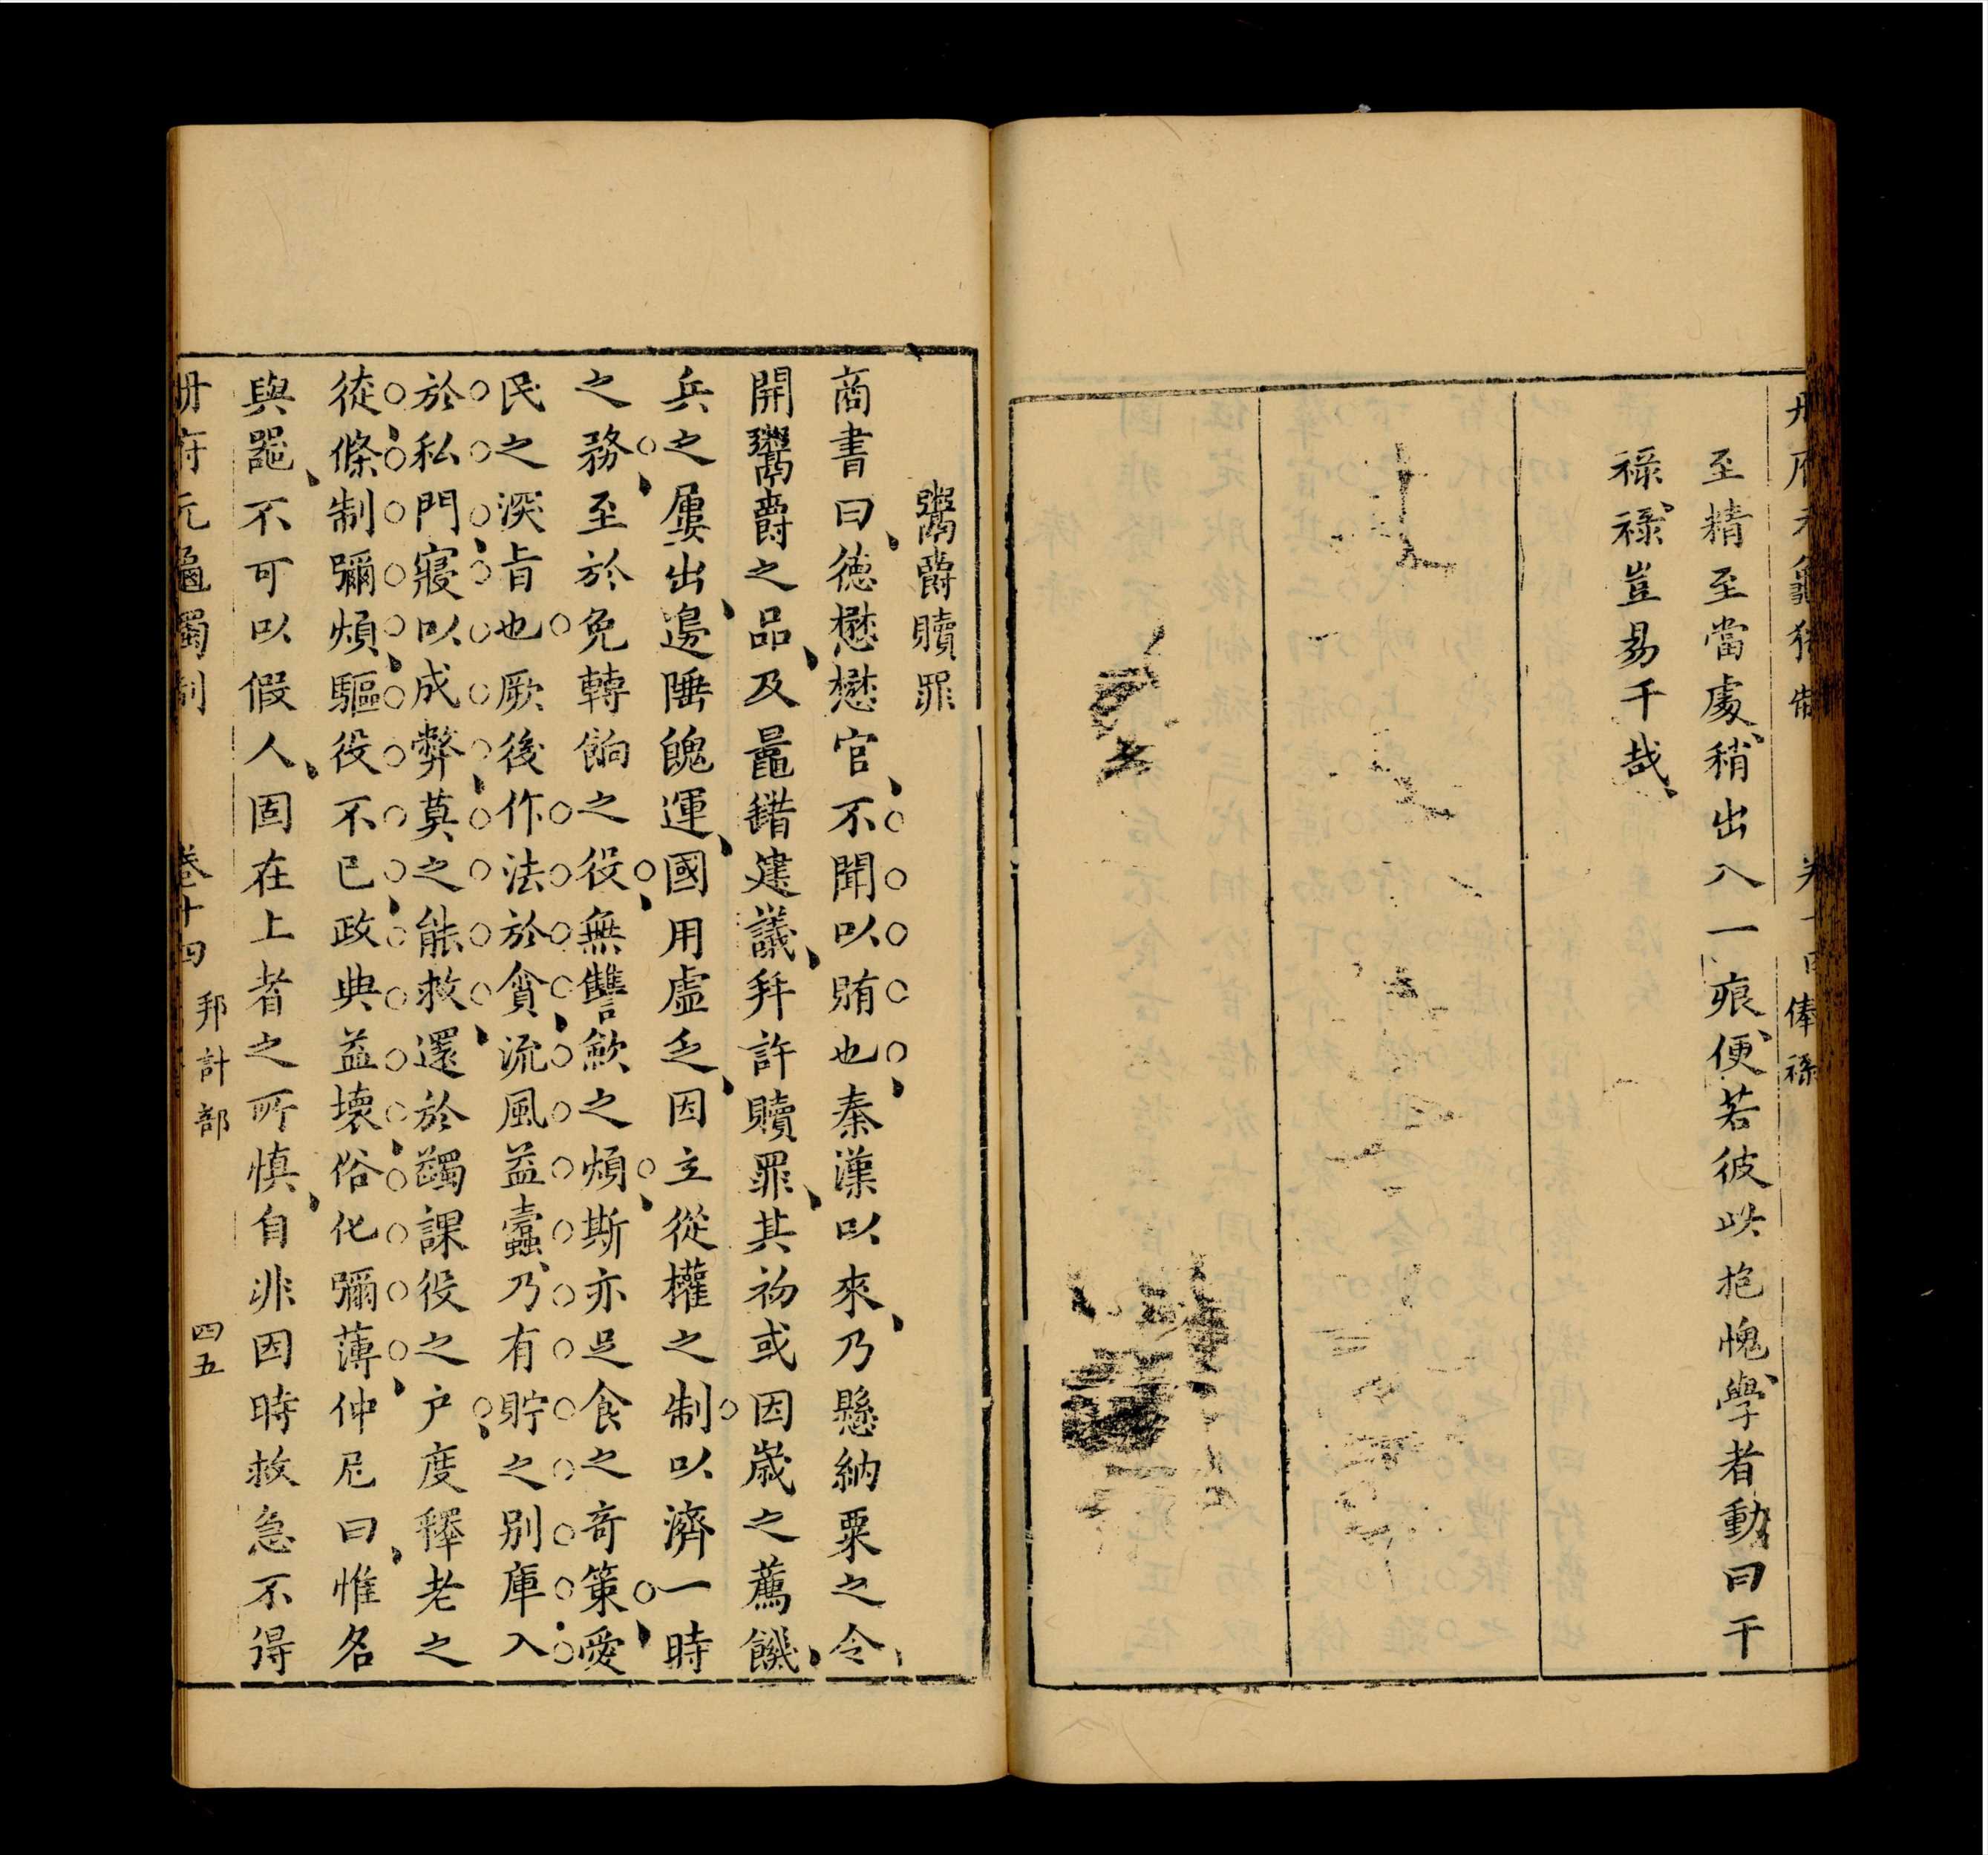 冊府元龜獨制 卷十四 俸祿
至精至當處稍出入一痕便若彼此抱愧學者動曰干
祿祿豈易干哉
鬻爵贖罪
商書曰德懋懋官不聞以賄也秦漢以來乃懸納粟之令
開鬻爵之品及鼂錯建議幷許贖罪其初或因歲之薦饑
兵之屢出邊陲餽運國用虛乏因立從權之制以濟一時
之務至於免轉餉之役無讐歛之煩斯亦足食之奇策愛
民之深旨也厥後作法於貪流風益蠧乃有貯之別庫入
於私門寢以成弊莫之能救還於蠲課役之戶度釋老之
徒條制彌煩驅役不已政典益壞俗化彌薄仲尼曰惟名
與噐不可以假人固在上者之所慎自非因時救急不得
冊府元龜獨制 卷十四 邦計部 四五